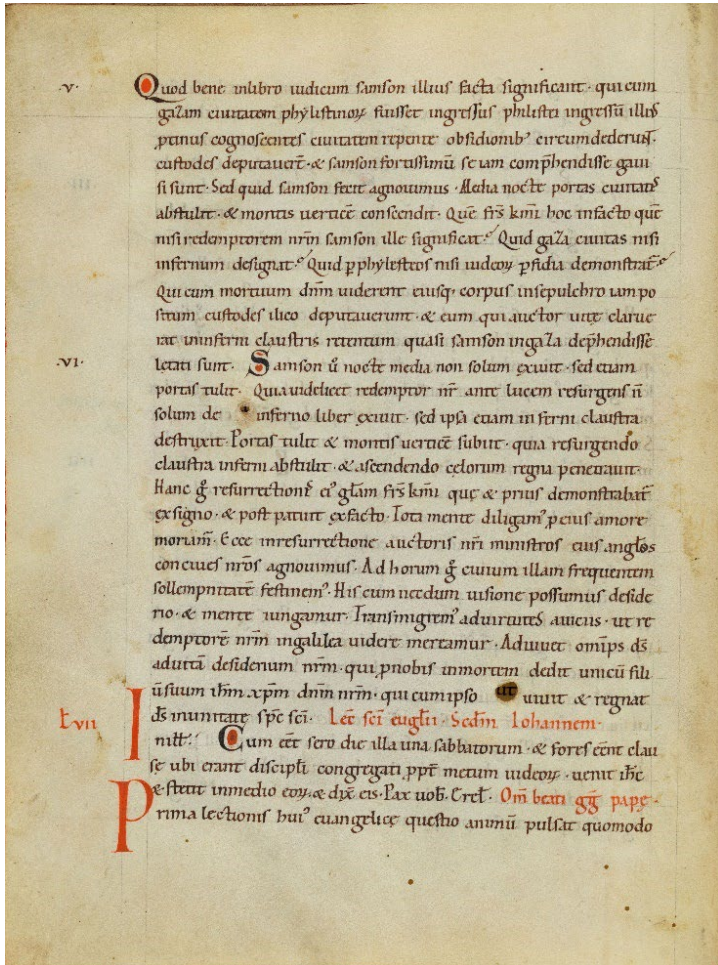 .v. Quod bene inlibro iudicum samson illius facta significant· qui cum
gazam ciuitatem phylistinoꝝ fuisset ingressus philistei ingressū illiꝰ
ꝓtinus cognoscentes ciuitatem repente obsidionibꝰ circumdederunt̄·
custodes deputauer̄t· & samson fortissimū se iam comp̄hendisse gaui
si sunt· Sed quid samson fecit agnouimus· Media nocte portas ciuitatis
abstulit· & montis uerticē conscendit· Quē fr̄s km̄i hoc infacto quē
nisi redemptorem nr̄m samson ille significat? Quid gaza ciuitas nisi
infernum designat? Quid ꝑ phylesteos nisi iudeoꝝ ꝑfidia demonstrat̄?
Qui cum mortuum dn̄m uiderent eiusq; corpus insepulchro iam po
situm custodes ilico deputauerunt· & eum qui auctor uitę clarue
rat ininferni claustris retentum quasi samson ingaza dep̄hendisse
.VI. lętati sunt· Samson ū nocte media non solum exiuit· sed etiam
portas tulit· Quia uidelicet redemptor nr̄ ante lucem resurgens n̄
solum de inferno liber exiuit· sed ipsa etiam inferni claustra
destruxit· Portas tulit & montis uerticē subiit· quia resurgendo
claustra inferni abstulit· & ascendendo celorum regna penetrauit·
Hanc g̊ resurrectionis eiꝰ gl̄am fr̄s km̄i quę & prius demonstrabat̄
ex signo· & post patuit ex facto· Tota mente diligamꝰ ꝓ eius amore
moriam̄· Ecce inresurrectione auctoris nr̄i ministros eius angl̄os
conciues nr̄os agnouimus· Ad horum g̊ ciuium illam frequentem
sollempnitatē festinemꝰ· His cum necdum uisione possumus deside
rio· & mente iungamur· Transmigremꝰ aduirtutes auiciis· ut re
demptorē nr̄m ingalilea uidere mereamur· Adiuuet omīps ds̄
aduitā desiderium nr̄m· qui ꝓnobis inmortem dedit unicū fili
ūsuum ih̄m xp̄m dn̄m nr̄m· qui cum ipso uiuit & regnat
ds̄ inunitate sp̄c sc̄i· Lec̄ sc̄i eugl̄ii· Scd̄m Iohannem·
t̄ vii Inill̄t̄: Cum eēt sero die illa una sabbatorum· & fores eēnt clau
sę ubi erant discipl̄i congregati ꝓpt̄ metum iudeoꝝ· uenit ih̄c
& stetit inmedio eoꝝ & dix̄ eis· Pax uob̄· & rel̄· Om̄ beati gḡ papę·
Prima lectionis huiꝰ euangelicę questio animū pulsat quomodo